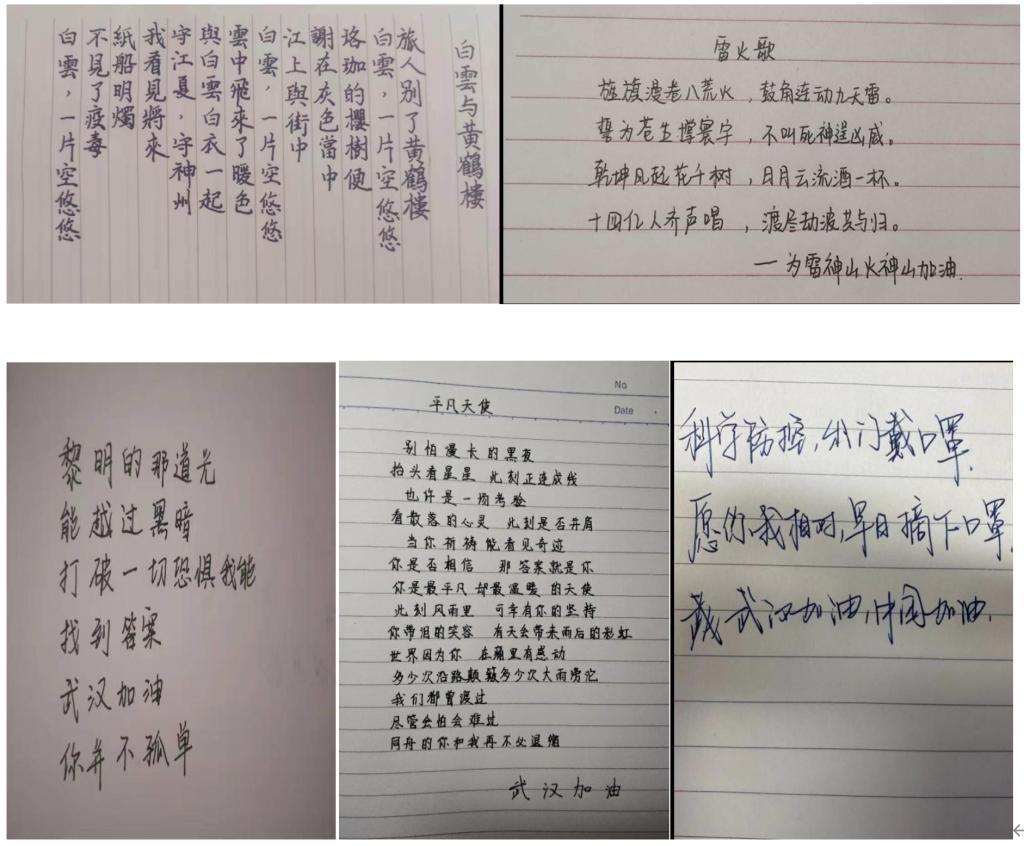 白雲与黃鶴樓
旅人别了黃鶴樓
白雲，一片空悠悠
珞珈的櫻樹便
謝在灰色當中
江上與街中
白雲，一片空悠悠
雲中飛來了暖色
與白雲白衣一起
守江夏，守神州
我看見將來
紙船明燭
不見了疫毒
白雲，一片空悠悠
雷火歌
旌旗漫卷八荒火，鼓角连动九天雷。
誓为苍生撑寰宇，不叫死神逞凶威。
乾坤风起花千树，日月云流酒一杯。
十四亿人齐声唱，渡尽劫波共与归。
一为雷神山火神山加油.
黎明的那道光
能越过黑暗
打破一切恐惧我能
找到答案
武汉加油
你并不孤单
No
Date
平凡天使
别怕漫长的黑夜
抬头看星星 此刻正连成线
也许是一场考验
看散落的心灵 此刻是否并肩
当你祈祷能看见奇迹
你是否相信 那答案就是你
你是最平凡 却最温暖的天使
此刻风雨里 可幸有你的坚持
你带泪的笑容 有天会带来雨后的彩虹
世界因为你 在痛里有感动
多少次沿路颠簸多少次大雨滂沱
我们都曾渡过
尽管会怕会难过
同舟的你和我再不必退缩
武汉加油
科学防控，出门戴口罩.
愿你我相对，早日摘下口罩.
武汉加油，中国加油.